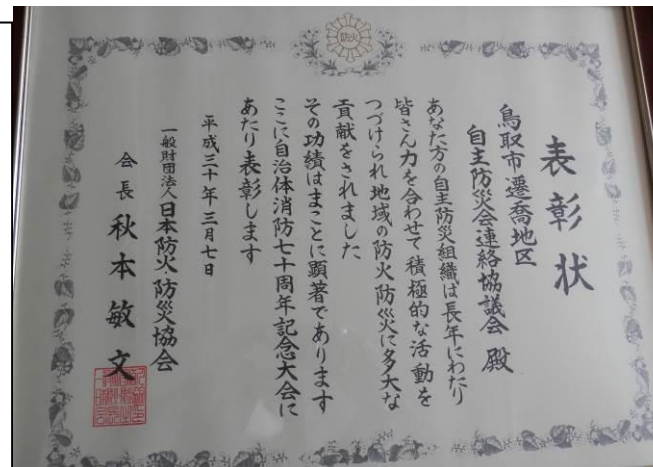 防火
表彰状
鳥取市遷喬地区
自主防災会連絡協議会 殿
あなた方の自主防災組織は長年にわたり
皆さん力を合わせて積極的な活動を
つづけられ地域の防火防災に多大な
貢献をされました
その功績はまことに顕著であります
ここに自治体消防七十周年記念大会に
あたり表彰します
平成三十年三月七日
一般財団法人日本防火・防災協会
会長 秋本敏文